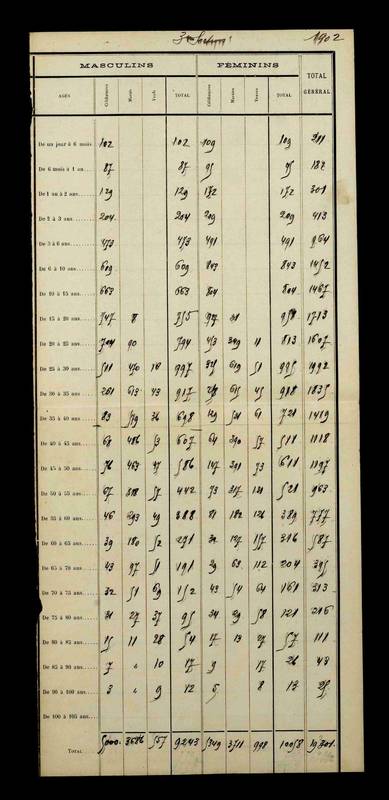 3me Section 1902
MASCULINS FÉMININS TOTAL GÉNÉRAL
AGES Célibataires Mariés Veufs TOTAL Célibataires Mariées Veuves TOTAL
De un jour à 6 mois 102 102 109 109 211
De 6 mois à 1 an 87 87 95 95 182
De 1 an à 2 ans 129 129 172 172 301
De 2 à 3 ans 204 204 209 209 413
De 3 à 6 ans 473 473 491 491 964
De 6 à 10 ans 609 609 843 843 1452
De 10 à 15 ans 663 663 804 804 1467
De 15 à 20 ans 747 8 755 958 1713
De 20 à 25 ans 704 90 794 453 349 11 813 1607
De 25 à 30 ans 511 470 16 997 995 1992
De 30 à 35 ans 261 613 43 917 918 1835
De 35 à 40 ans 83 579 36 698 721 1419
De 40 à 45 ans 68 486 53 607 64 390 57 511 1118
De 45 à 50 ans 76 463 47 586 147 391 73 611 1197
De 50 à 55 ans 67 318 57 442 73 317 131 521 963
De 55 à 60 ans 46 293 49 388 81 182 126 389 777
De 60 à 65 ans 39 180 52 271 32 127 157 316 587
De 65 à 70 ans 43 97 51 191 29 63 112 204 395
De 70 à 75 ans 32 51 69 152 43 54 64 161 313
De 75 à 80 ans 31 27 37 95 34 29 58 121 216
De 80 à 85 ans 15 11 28 54 17 13 27 57 111
De 85 à 90 ans 7 " 10 17 9 17 26 43
De 90 à 100 ans 3 " 9 12 5 8 13 25
De 100 à 105 ans
TOTAL 5000 3686 557 9243 5349 3711 998 10058 19301